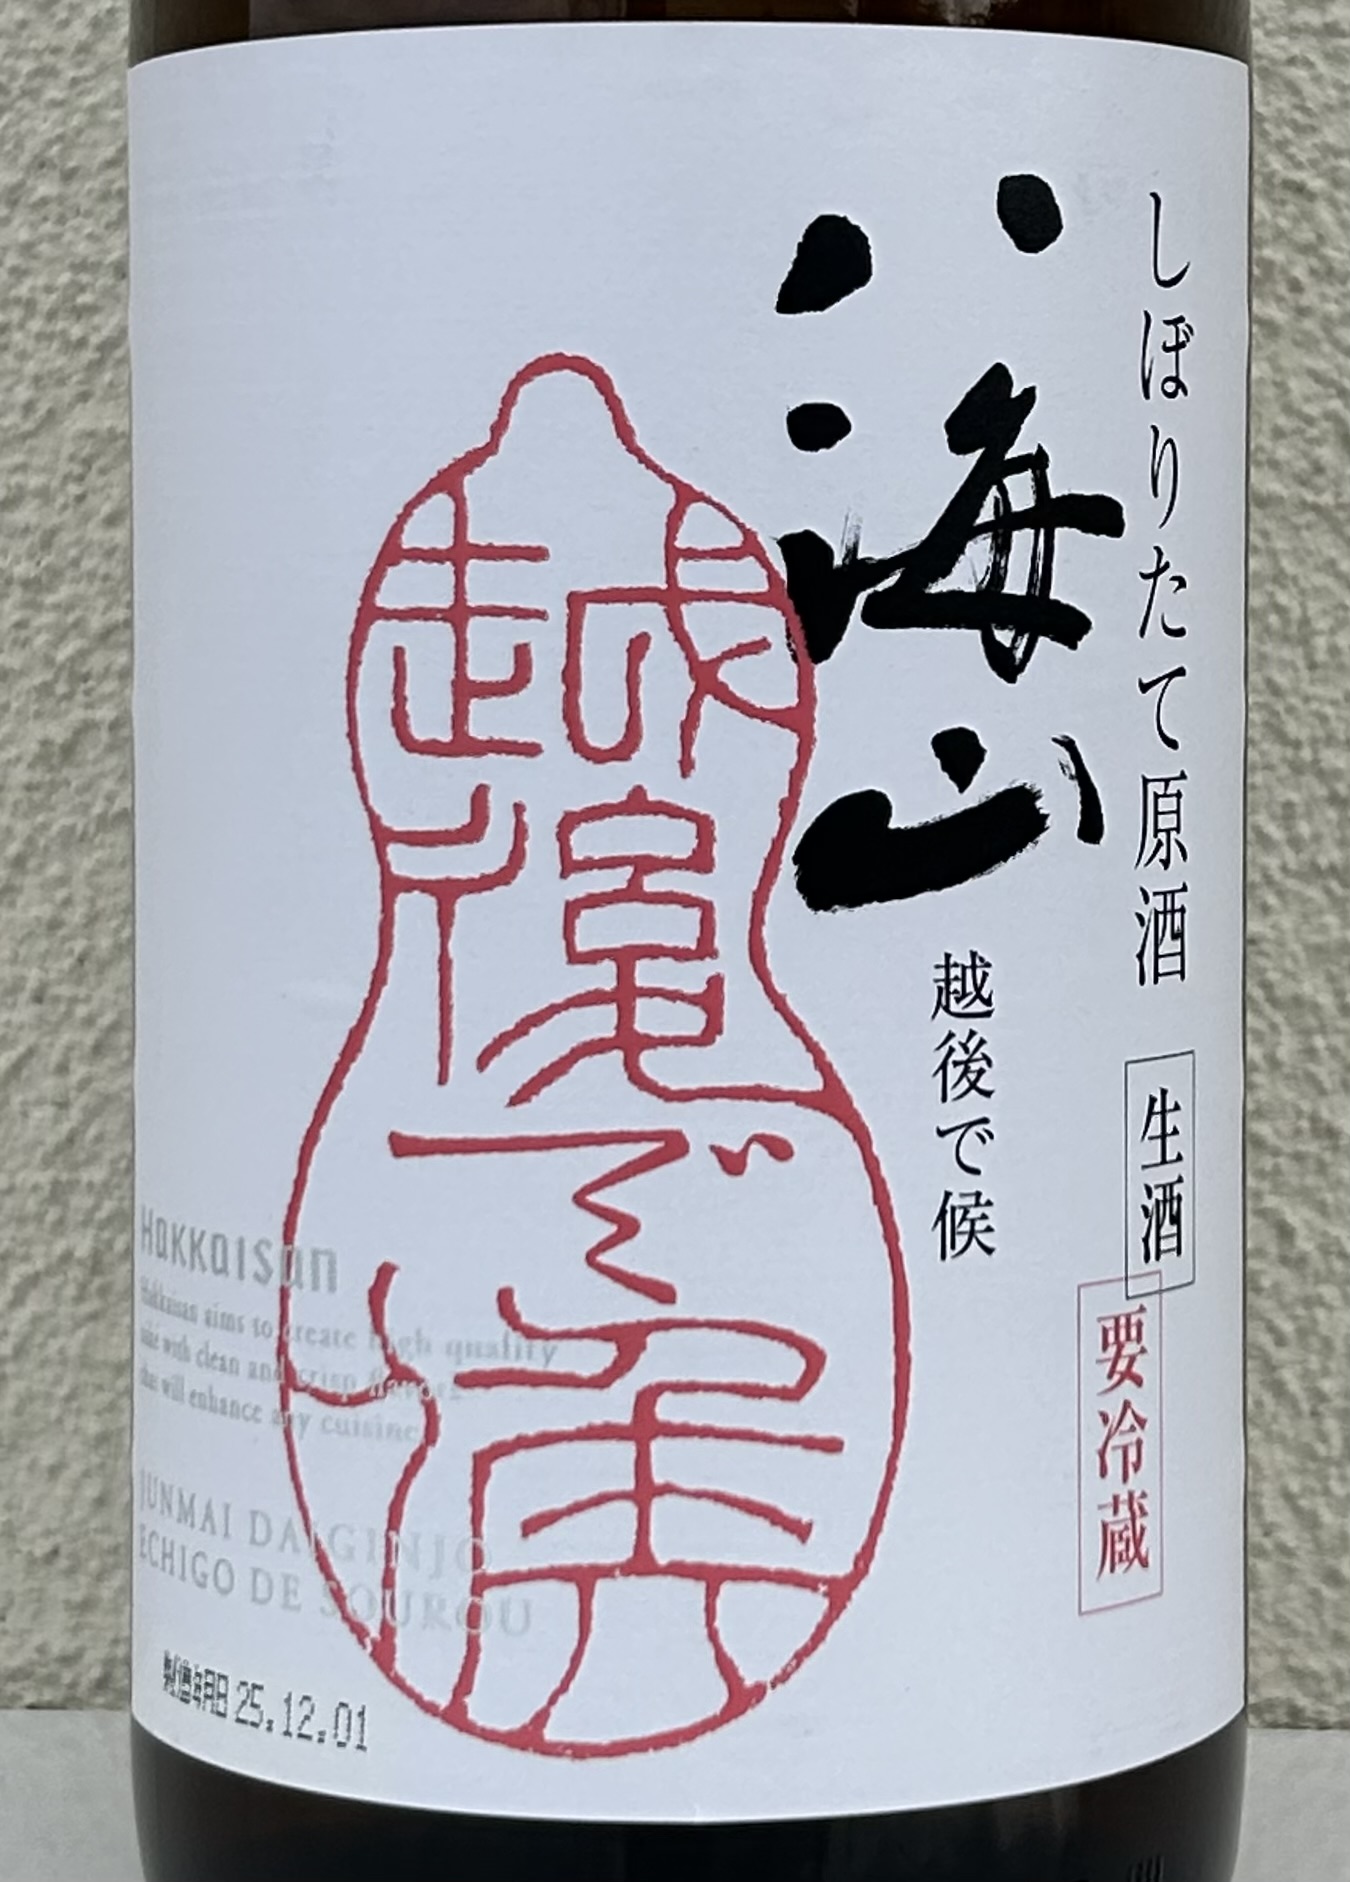 しぼりたて原酒
生酒
要冷蔵
八海山
越後で候
越後で候
Hakkaisan
Hakkaisan aims to create high quality
sake with clean and crisp flavors
that will enhance any cuisine
JUNMAI DAIGINJO
ECHIGO DE SOUROU
製造年月日 25.12.01